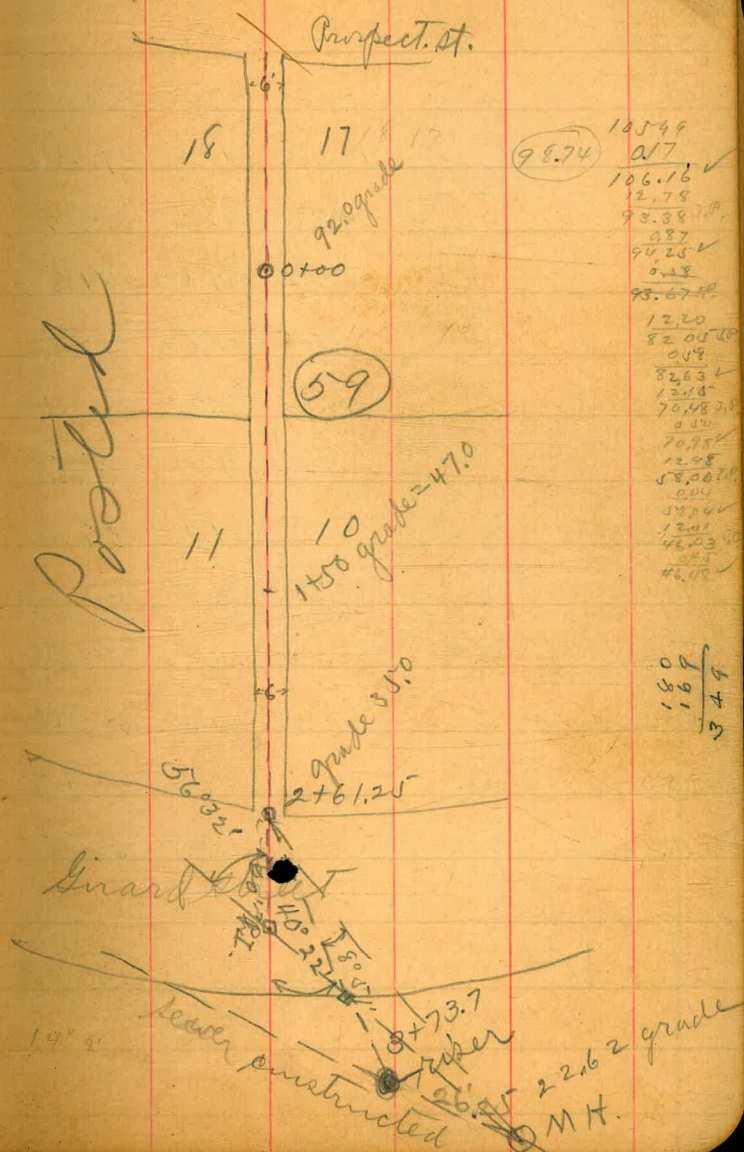 Prospect. st.
6'
18
17
92.0 grade
0+00
59
Posted
11
10
1+50 grade = 47.0
6'
grade 35.0
2+61.25
56°32'
Girard
40°22'
3+73.7
riser
sewer constructed
26.25
22.62 grade
M H.
98.74
10599
0.17
106.16 ✓
12.78
93.38
0.87
94.25 ✓
0.58
93.67
12.20
82.05
0.58
82.63 ✓
12.15
70.48
0.50
70.98 ✓
12.98
58.00
0.04
58.04 ✓
12.01
46.03
0.45
46.48 ✓
180
169
349